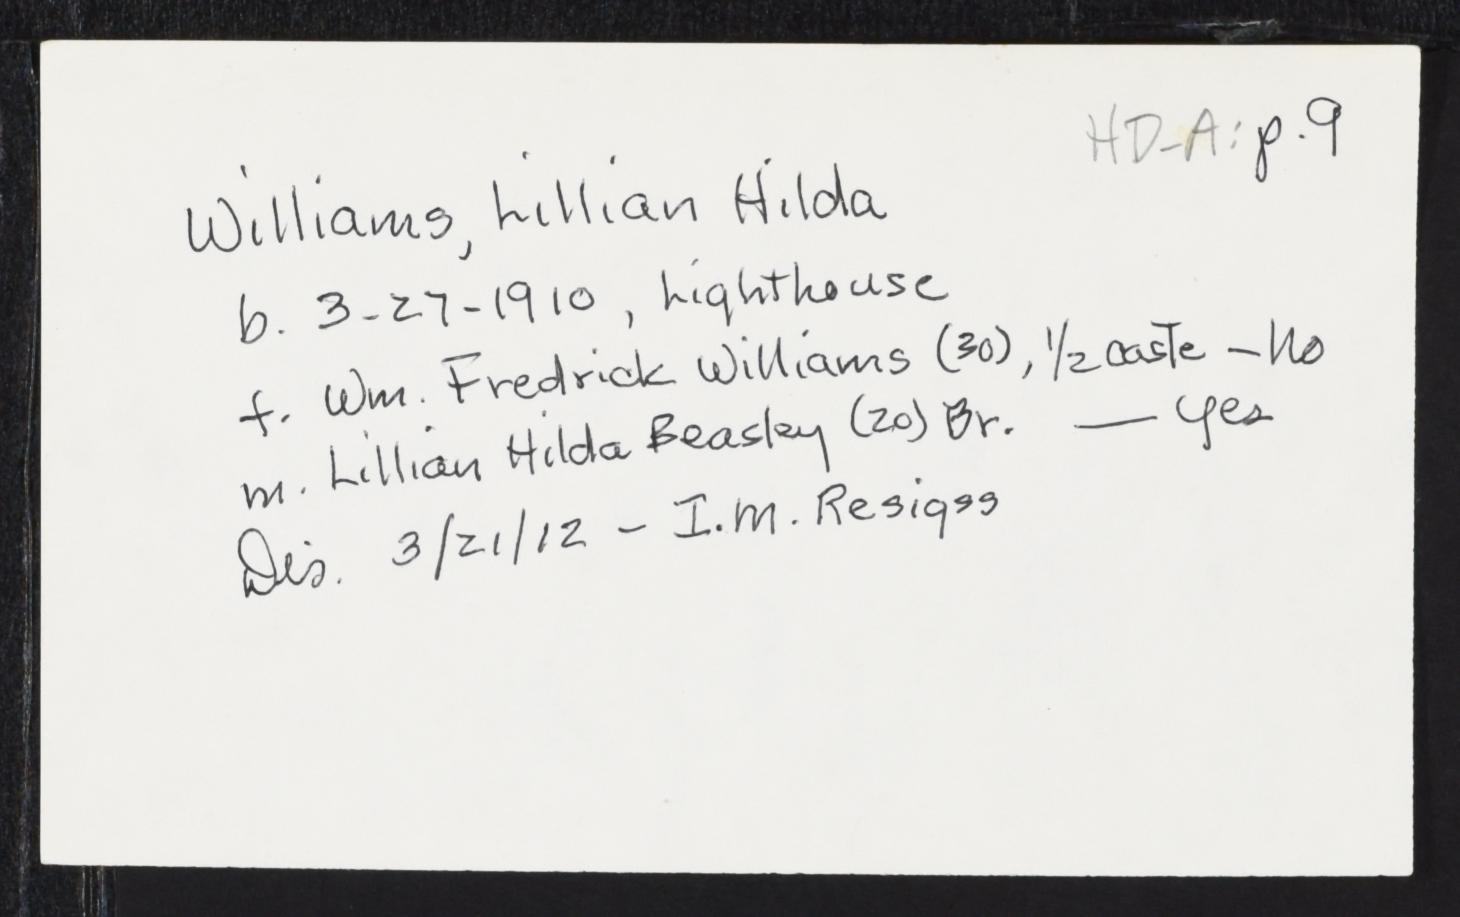 HD-A: p.9
Williams, Lillian Hilda
b. 3-27-1910, Lighthouse
f. Wm. Fredrick Williams (30), 1/2 caste - No
m. Lillian Hilda Beasley (20) Br. — Yes
Dis. 3/21/12 - I.M. Resigss